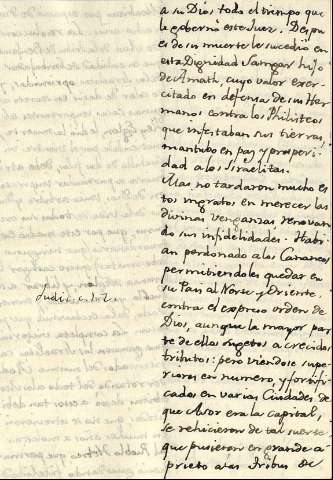 a su Dios todo el tiempo que
la gobernò este Juez. Despu
es de su muerte le sucedio en
esta Dignidad Samgar hijo
de Anath, cuyo valor exer-
citado en defensa de sus Her
manos contra los Philisteos
que infestaban sus tierras
mantubo en paz y prosperi
dad a los Israelitas.
Mas no tardaron mucho es
tos ingratos en merecer las
divinas venganzas renovan
do sus infidelidades. Habi
an perdonado a los Cananeos
permitiendoles quedar en
su Pais al Norte y Oriente,
contra el expreso orden de
Dios, aunque la mayor par
te de ellos sugetos a crecidos
tributos: pero viendose supe-
riores en numero, y fortifi
cados en varias Ciudades de
que Asor era la capital,
se rehicieron de tal suerte
que pusieron en grande a-
prieto a las Tribus de
Judic. c.